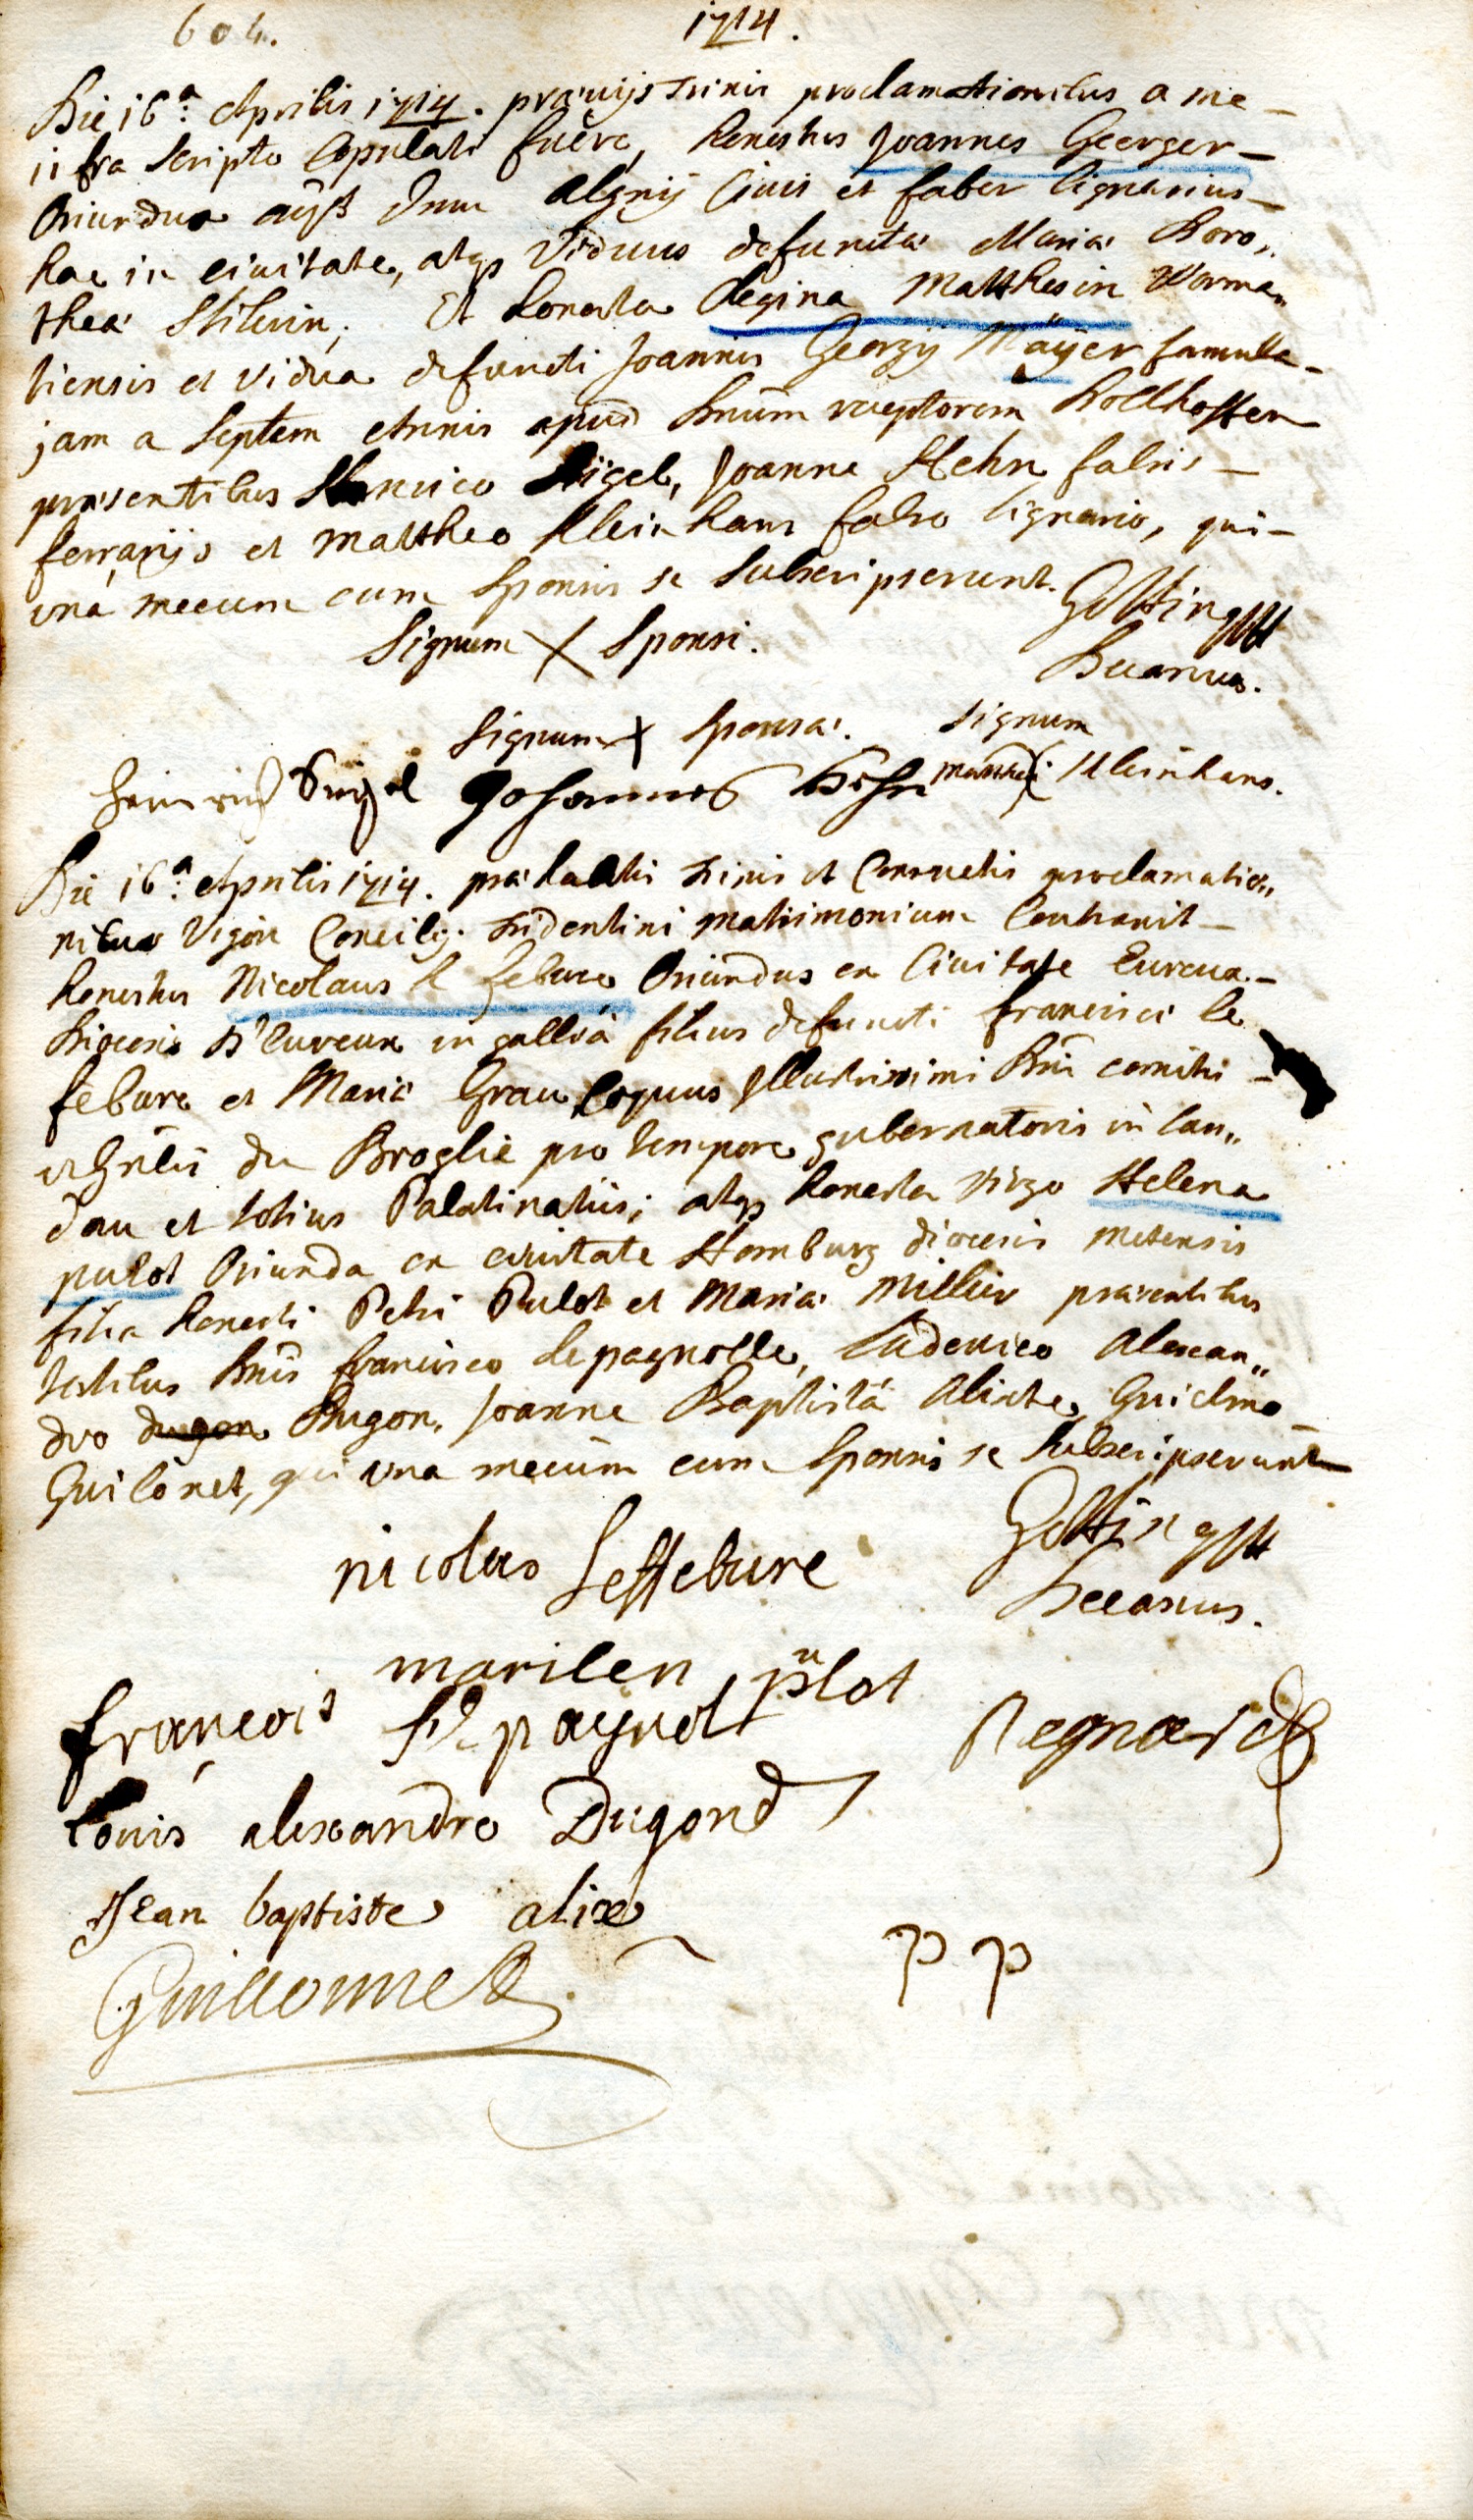 604. 1714.
Die 16a: Aprilis 1714. praeuijs trinis proclamationibus a me
infra scripto Copulati fuêre, Honestus Joannes Georger
Oriundus auß dem Algnij Ciuis et faber lignarius
hac in ciuitate, atq viduus defunctae Mariae Doro„
theae Stilerin, Et Honesta Regina Matthesin Worma„
tiensis et vidua defuncti Joannis Georgij Maÿer famula
jam a Septem Annis apud Dnum receptorem Hollhoffer
praesentibus Henrico Sigel, Joanne Hehn fabris
ferrarijs et Mattheo Kleinhans fabro lignario, qui
una mecum cum Sponsis se subscripserunt.
Gotting
Signum X Sponsi.
Decanus.
Signum X Sponsae. Signum
Heinrich Sigel Johannes Hehn Matthaei X Kleinhans.
Die 16a: Aprilis 1714. prae habitis trinis et Consuetis proclamatio„
nibus Vigore Concilij Tridentini matrimonium Contraxit
Honestus Nicolaus le febure Oriundus ex Ciuitate Eureux
Dioecesis D'Eureux in galliâ filius defuncti francisci le
febure et Mariae Grau Coquus Illustrissimi Dni comitis
de Broglie pro tempore gubernatoris in Lan„
dau et totius Palatinatûs; atq Honesta virgo Helena
pulot Oriunda ex ciuitate Homburg dioecesis metensis
filia Honesti Petri Pulot et Mariae Miller praesentibus
testibus Dnis francisco Lepagnolle, Ludouico Alexan„
dro dugon Dugon, Joanne Baptistâ Alixte, Guielmo
Guilonet, qui una mecum cum Sponsis se subscripserunt
Gotting
nicolas Leffebure
Decanus.
marilen pulot
françois lepagnol Regnard
Louis alexandre Dugond
Jean baptiste alix
p p
Guillonnet